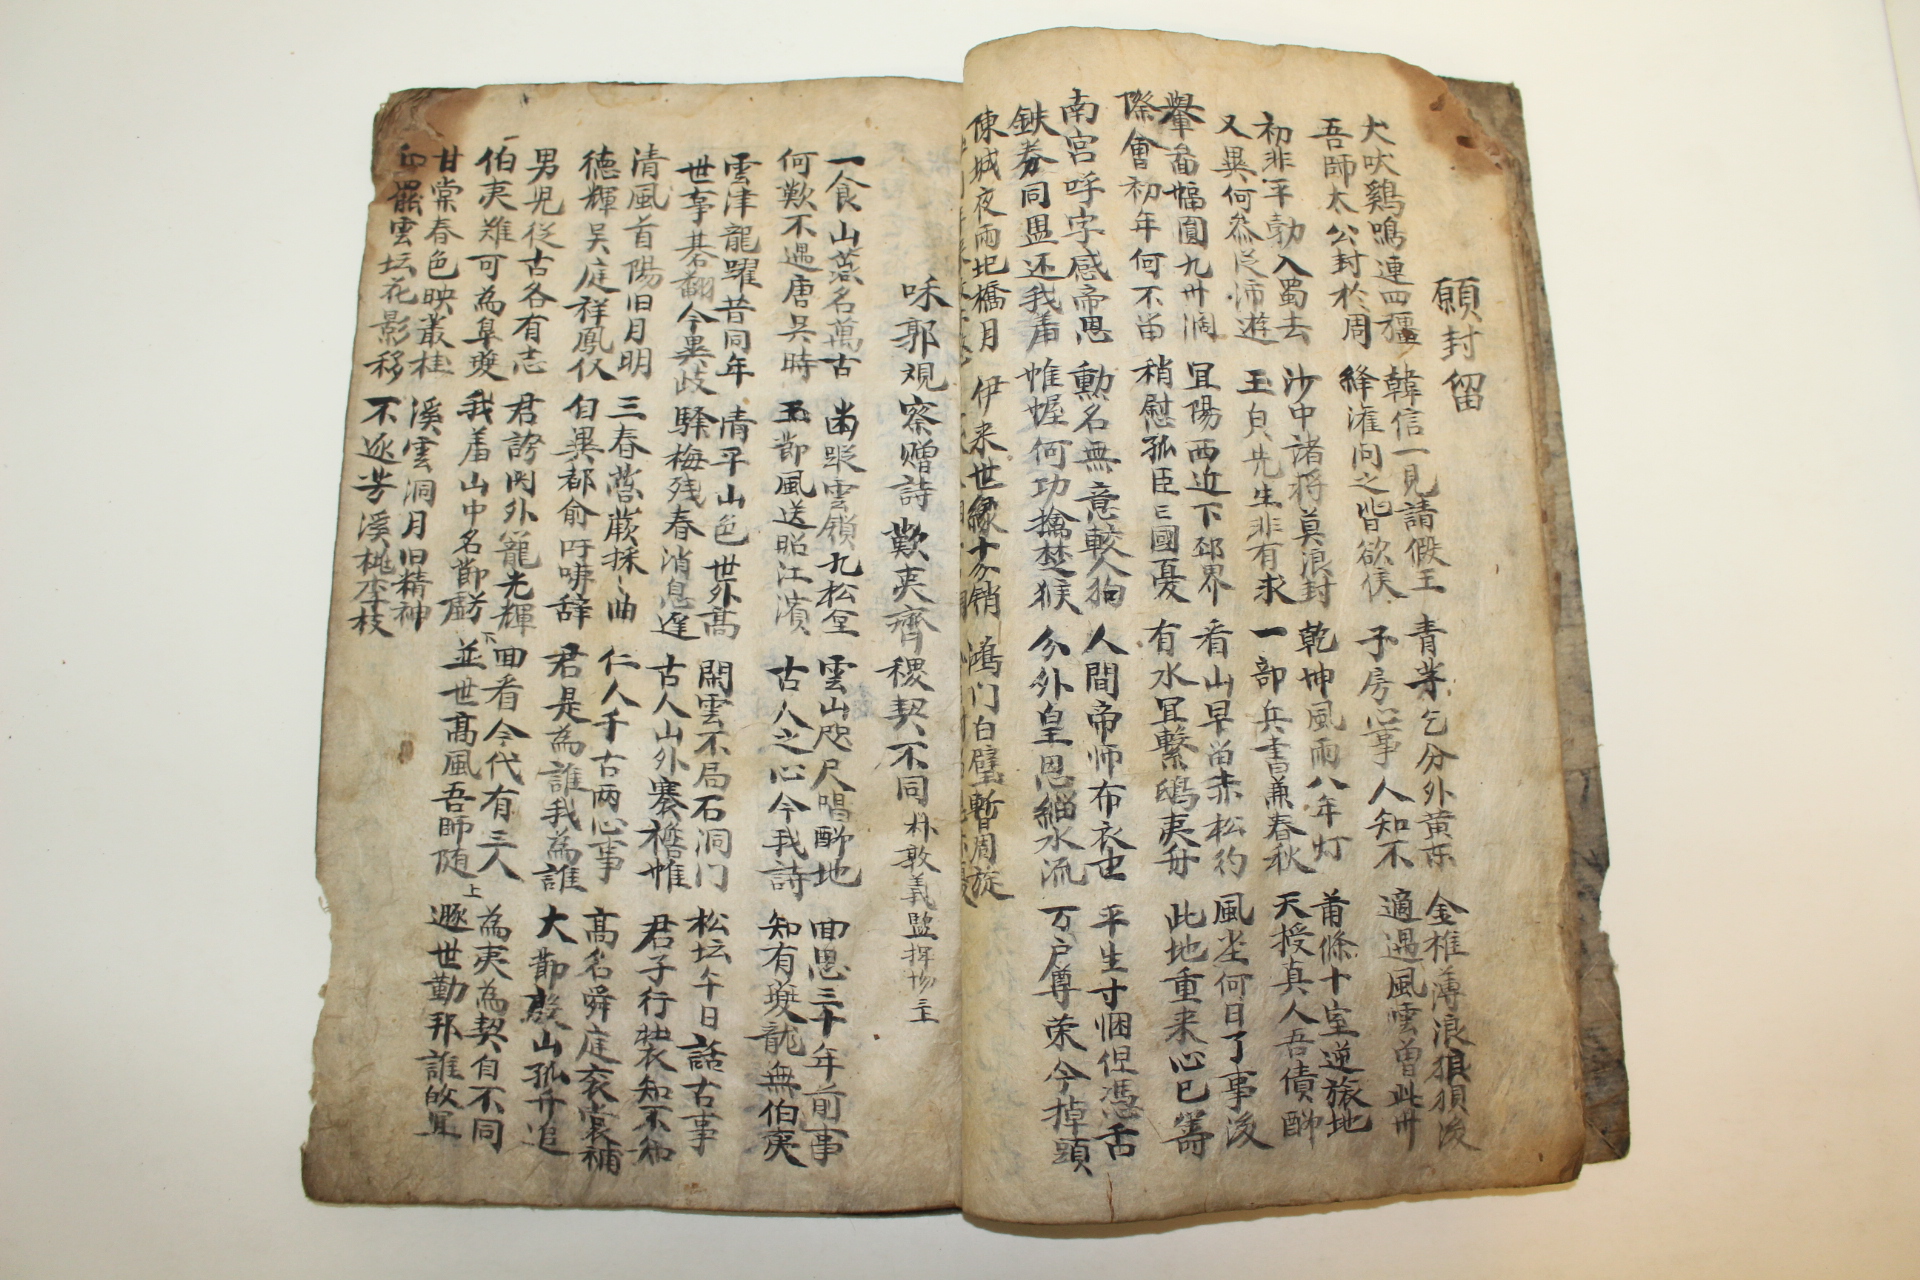 願封留
犬吠鷄鳴連四疆 韓信一見請假王 青茅乞分外黃 金椎薄浪狙後
吾師太公封於周 絳灌问之皆欲侯 子房心事人知不 適過風雲曾此
初非平勃入蜀去 沙中諸将莫浪封 乾坤風雨八年灯 蕭條十室逆旅地
又異何叅従沛遊 玉貞先生非有求 一部兵書兼春秋 天授真人吾債酬
轝畵幅圓九州澗 冝陽西近下邳界 看山早留赤松約 風尘何日了事後
際會初年何不留 稍慰孤臣亡國憂 有水冝繫鴟夷舟 此地重来心已籌
南宮呼字感帝恩 勳名無意較人狗 人間帝师布衣也 平生寸悃但憑舌
鉄券同盟还我羞 帷幄何功擒楚猴 分外皇恩細水流 万户尊荣今掉頭
陳城夜雨圯橋月 伊来世縁十分销 鴻门白璧暫周旋
和郭观察赠詩 歎夷齊稷契不同 朴敦義監
一食山薇名萬古 蹤雲鎖九松堂 雲山咫尺唱酬地 回思三十年前事
何歎不遇唐吳時 玉莭風送昭江濱 古人之心今我詩 知有夔龍無伯夷
雲津龍躍昔同年 清平山色世外高 閑雲不局石洞门 松坛午日話古事
世事碁翻今異歧 驛梅残春消息遅 古人山外褰襜帷 君子行裝知不知
清風首陽旧月明 三春薇蕨採〻曲 仁人千古两心事 高名舜庭衮裳補
德輝吴庭祥鳳仪 自異都俞吁咈辞 君是為誰我為誰 大莭殷山孤舟追
男児従古各有志 君誇閃外龍光輝 回看今代有三人 為夷為契自不同
伯夷難可為臯夔 我羞山中名莭戲 並世高風吾師随 遯世勤邦誰敀冝
甘棠春色映叢桂 溪雲洞月旧精神
罷雲坛花影移 不逐芳溪桃李枝